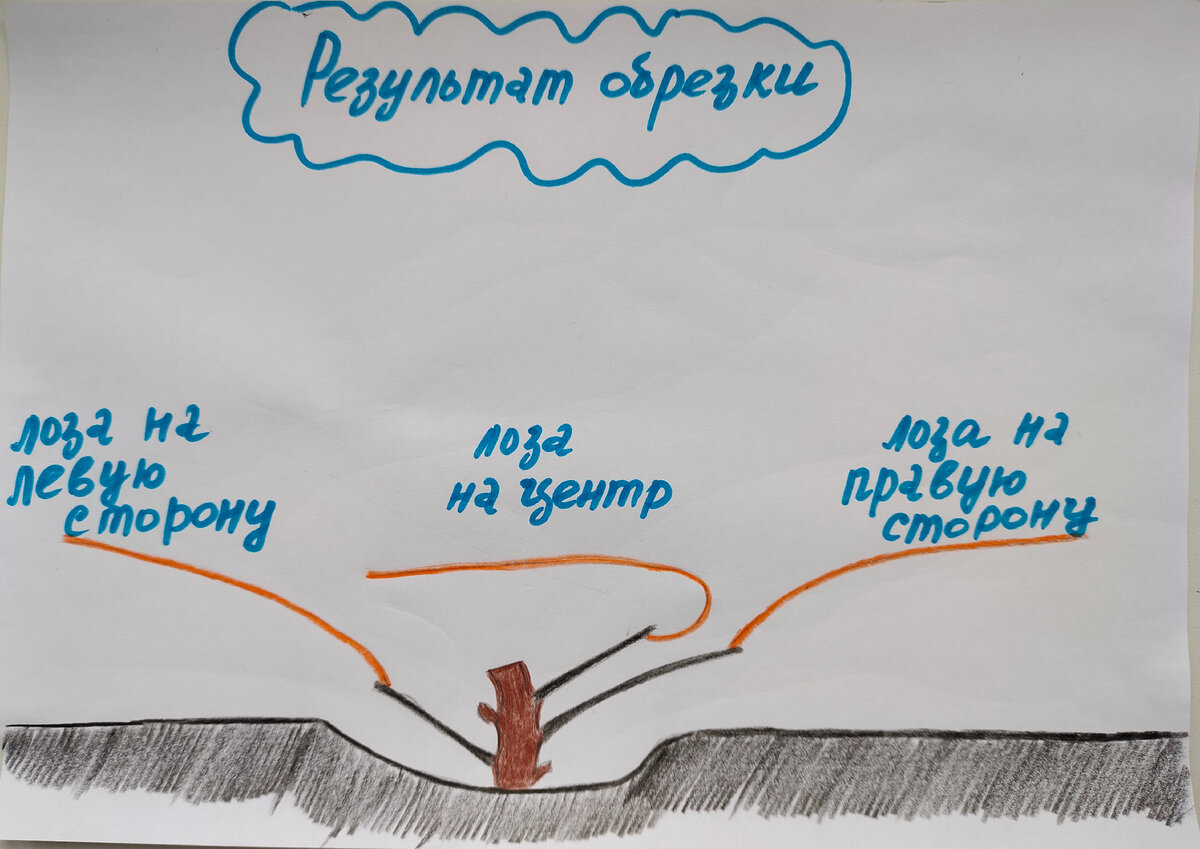 Результат обрезки
лоза на
левую
сторону
лоза
на центр
лоза на
правую
сторону